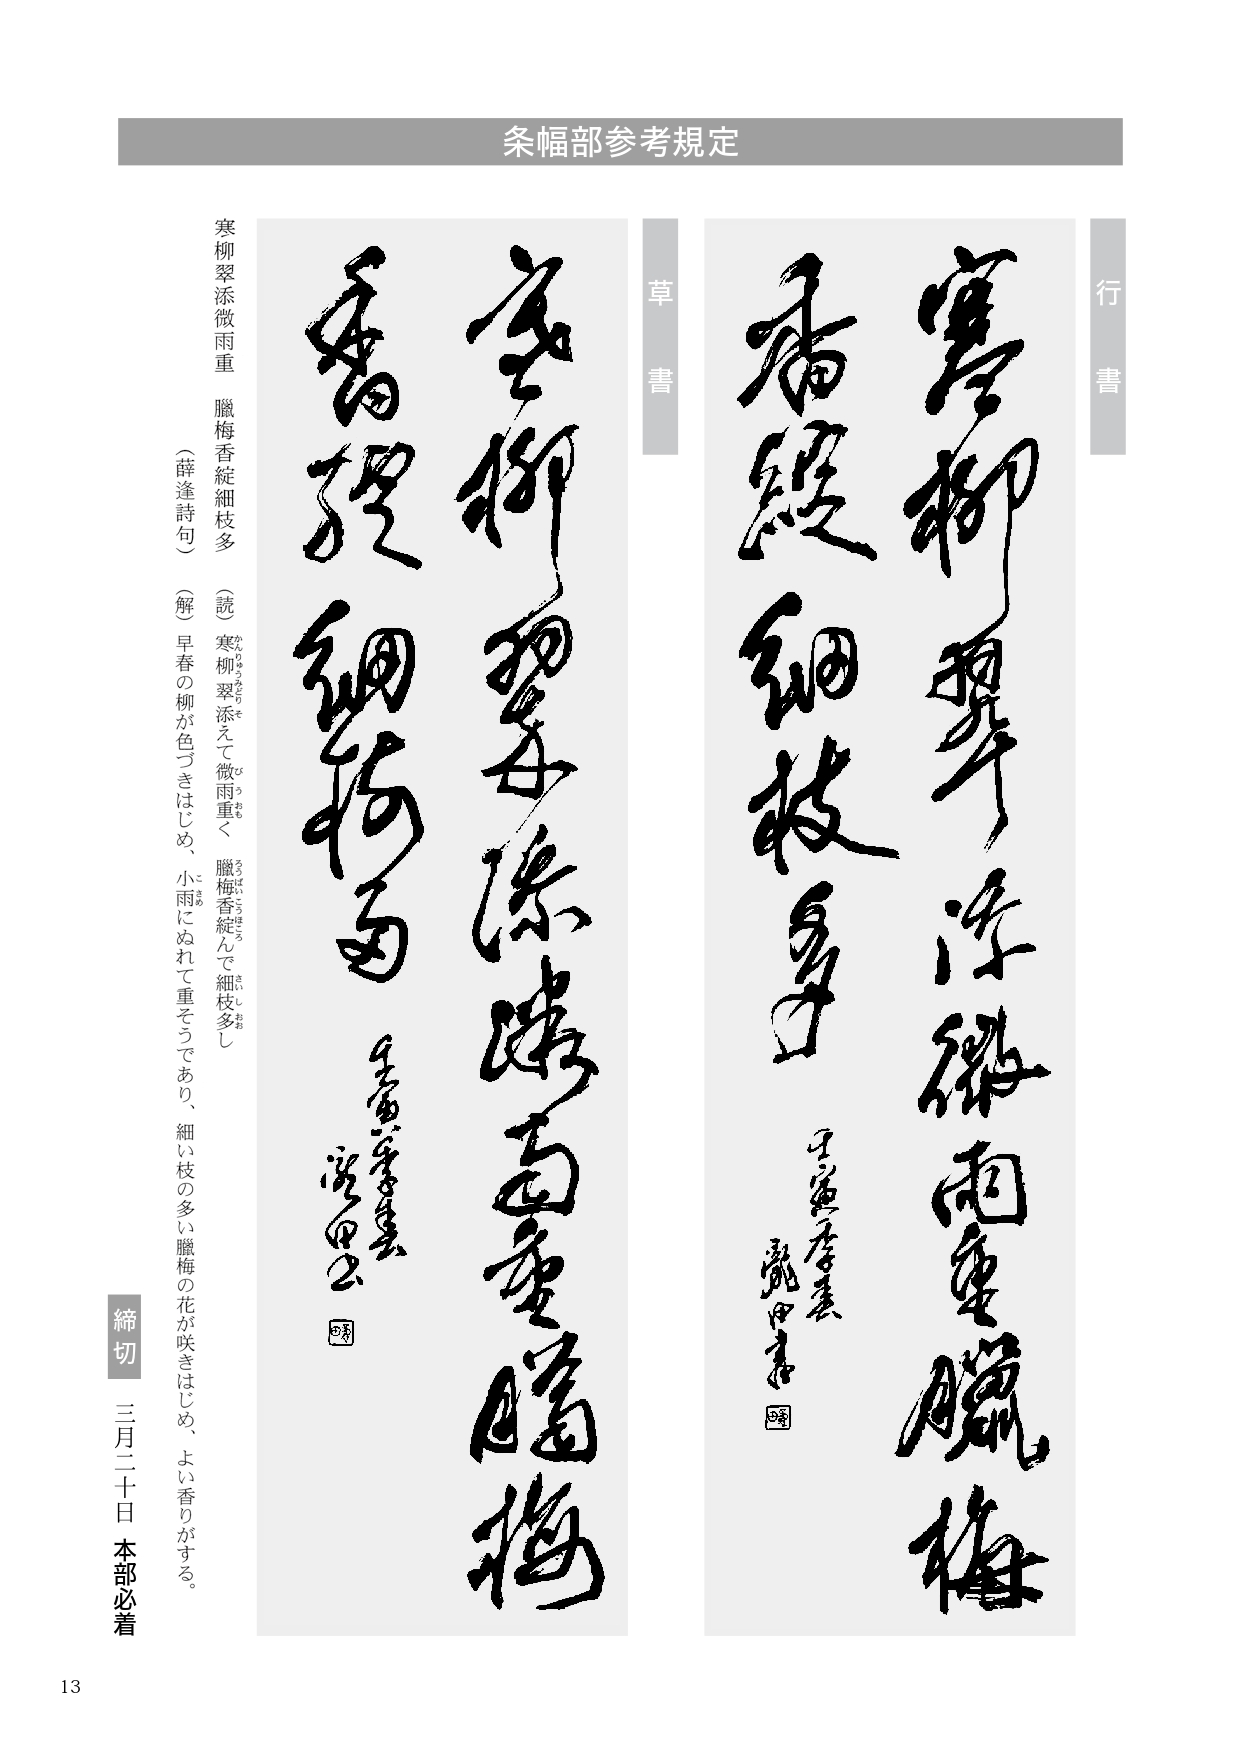 条幅部参考規定
行書
寒柳翠添微雨重臘梅
香綻細枝多
壬寅季春
龍田書
草書
寒柳翠添微雨重臘梅
香綻細枝多
壬寅季春
寒柳翠添微雨重　臘梅香綻細枝多　（読）寒柳翠添えて微雨重く　臘梅香綻んで細枝多し
かんりゅうみどり　そ　びう　おも　ろうばいこうほころ　さいし　おお
（薛逢詩句）　（解）早春の柳が色づきはじめ、小雨にぬれて重そうであり、細い枝の多い臘梅の花が咲きはじめ、よい香りがする。
こさめ
締切　三月二十日　本部必着
13